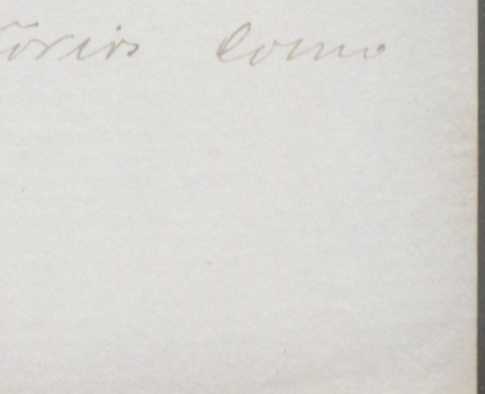 torios como